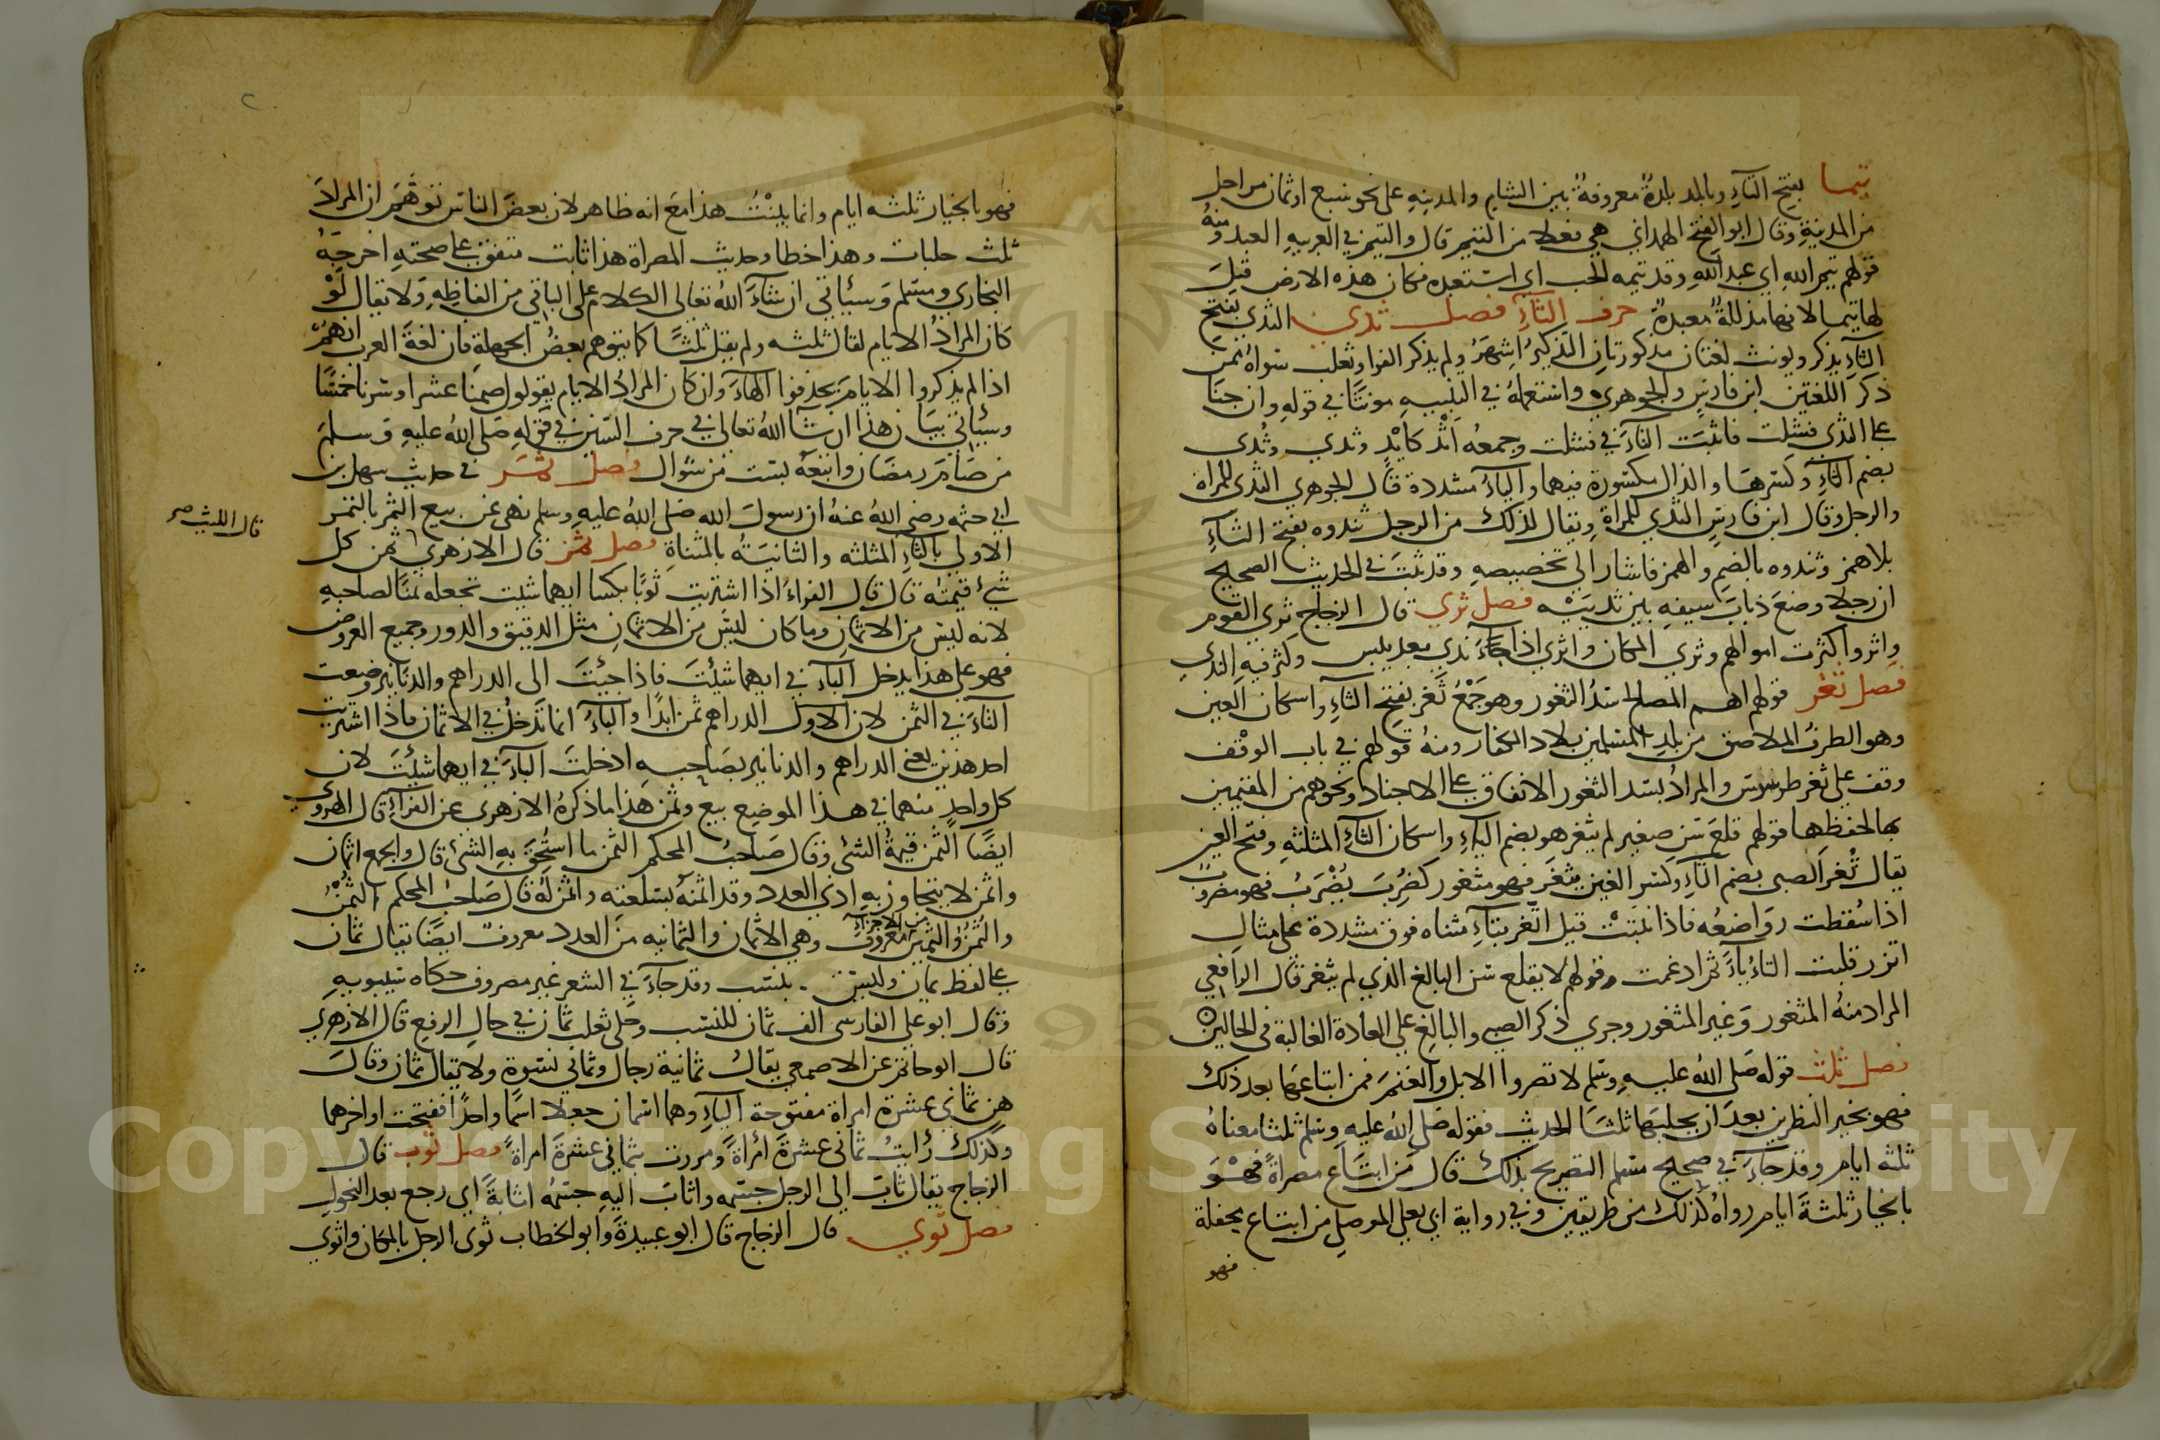 تيما بفتح التآء وبالمد بلدة معروفة بين الشام والمدينه على نحو سبع او ثمان مراحل
من المدينة وقال ابو الفتح الهمداني هي فعلا من التيم قال والتيم في العربيه العبد ومنه
قولهم تيم الله اي عبد الله وقد تيمه الحب اي استعبده فكان هذه الارض قيل
لها تيما لانها مذللة معبدة حرف الثآء فصل ثدي الثدي بفتح
الثآء يذكر ويونث لغتان مذكورتان التذكير اشهر ولم يذكر الفرا وثعلب سواه ممن
ذكر اللغتين ابن فارس والجوهري واستعمله في التنبيه مونثا في قوله وان جنا
على الثدي فشلت فاثبت التآء في فشلت وجمعه اثد كايد وثدي وثدي
بضم الثآء وكسرها والدال مكسورة فيهما واليآء مشددة قال الجوهري الثدي للمراة
والرجل وقال ابن فارس الثدي للمراة ويقال لذلك من الرجل ثندوه بفتح الثآء
بلا همز وثندوه بالضم والهمز فاشار الى تخصيصه وقد ثبت في الحديث الصحيح
ان رجلا وضع ذباب سيفه بين ثدييه فصل ثري قال الزجاج ثري القوم
واثروا كثرت اموالهم وثري المكان واثري اذا جآء ندي بعد يبس وكثر فيه الندي
فصل ثغر قولهم اهم المصالح سد الثغور وهو جمع ثغر بفتح الثآء واسكان الغين
وهو الطرف الملاصق من بلاد المسلمين بلاد الكفار ومنه قولهم في باب الوقف
وقف على ثغر طرسوس والمراد بسد الثغور الانفاق على الاجناد ونحوهم من المقيمين
بها لحفظها قولهم قلع سن صغير لم يثغر هو بضم اليآء واسكان الثآء المثلثه وفتح الغين
يقال ثغر الصبي بضم الثآء وكسر الغين يثغر فهو مثغور كضرب يضرب فهو مضروب
اذا سقطت رواضعه فاذا نبتت قيل اتغر بتآء مثناه فوق مشددة على مثال
اتزر قلبت الثاء تآء ثم ادغمت وقولهم لا يقلع سن البالغ الذي لم يثغر قال الرافعي
المراد منه المثغور وغير المثغور وجري ذكر الصبي والبالغ على العادة الغالبة في الحالين
فصل ثلث قوله صلى الله عليه وسلم لا تصروا الابل والغنم فمن ابتاعها بعد ذلك
فهو بخير النظرين بعد ان يحلبها ثلثا الحديث فقوله صلى الله عليه وسلم ثلثا معناه
ثلثه ايام وقد جآء في صحيح مسلم التصريح بذلك قال من ابتاع مصراة فهو
بالخيار ثلثة ايام رواه كذلك من طريقين وفي رواية ابي يعلي الموصلي من ابتاع محفلة
فهو
فهو بالخيار ثلثه ايام وانما بينت هذا مع انه ظاهر لان بعض الناس توهم ان المراد
ثلث حلبات وهذا خطا وحديث المصراة هذا ثابت متفق على صحته اخرجه
البخاري ومسلم وسيأتي ان شآء الله تعالى الكلام على الباقي من الفاظه ولا يقال لو
كان المراد الايام لقال ثلثه ولم يقل ثلثا كما يتوهم بعض الجهلة فان لغة العرب انهم
اذا لم يذكروا الايام يحذفوا الهآء وان كان المراد الايام يقولون صمنا عشرا وسرنا خمسا
وسيأتي بيان هذا ان شآ الله تعالى في حرف السين في قوله صلى الله عليه وسلم
من صام رمضان واتبعه بست من شوال فصل ثمر في حديث سهل بن
ابي حثمه رضي الله عنه ان رسول الله صلى الله عليه وسلم نهى عن بيع الثمر بالتمر
الاولى بالثآء المثلثه والثانية بالمثناة فصل ثمن قال الازهري ثمن كل
قال الليث صح
شيء قيمته قال قال الفراء اذا اشتريت ثوبا بكسا ايهما شيت تجعله ثمنا لصاحبه
لانه ليس من الاثمان وما كان ليس من الاثمان مثل الدقيق والدور وجميع العروض
فهو على هذا يدخل البآء في ايهما شئت فاذا جيت الى الدراهم والدنانير وضعت
البآء في الثمن لان الاول الدراهم ثمن ابدا والبآء انما تدخل في الاثمان فاذا اشتريت
احد هذين يعني الدراهم والدنانير بصاحبه ادخلت البآء في ايهما شئت لان
كل واحد منهما في هذا الموضع بيع وثمن هذا ما ذكره الازهري عن الفرآء قال الهروي
ايضا الثمن قيمة الشئ وقال صاحب المحكم الثمن ما استحق به الشئ قال والجمع اثمان
واثمن لا يتجاوز به ادني العدد وقد اثمنه بسلعته واثمن له قال صاحب المحكم الثمن
والثمن والثمين من الاجزآء معروف وهي الاثمان والثمانيه من العدد معروف ايضا يقال ثمان
على لفظ يمان وليس بنسب وقد جآء في الشعر غير مصروف حكاه سيبويه
وقال ابو علي الفارسي الف ثمان للنسب وحكى ثعلب ثمان في حال الرفع قال الازهري
قال ابو حاتم عن الاصمعي يقال ثمانية رجال وثماني نسوة ولا يقال ثمان وقال
هن ثماني عشرة امراة مفتوحة اليآء وهما اسمان جعلا اسما واحدا ففتحت اواخرهما
وكذلك رأيت ثماني عشرة امرأة ومررت بثماني عشرة امراة فصل ثوب قال
الزجاج يقال ثاب الى الرجل جسمه واثاب اليه جسمه اثابة اي رجع بعد النحول
فصل ثوي قال الزجاج قال ابو عبيدة وابو الخطاب ثوى الرجل بالمكان واثوي
Copyright © King Saud University